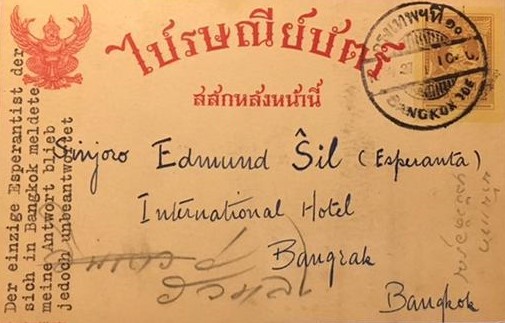 ไปรษณียบัตร
สลักหลังหน้านี้
กรุงเทพฯที่ ๑๐
BANGKOK 10E
Der einzige Esperantist der
sich in Bangkok meldete,
meine Antwort blieb
jedoch unbeantwortet
Sinjoro Edmund Ŝil (Esperanta)
International Hotel
Bangrak
Bangkok